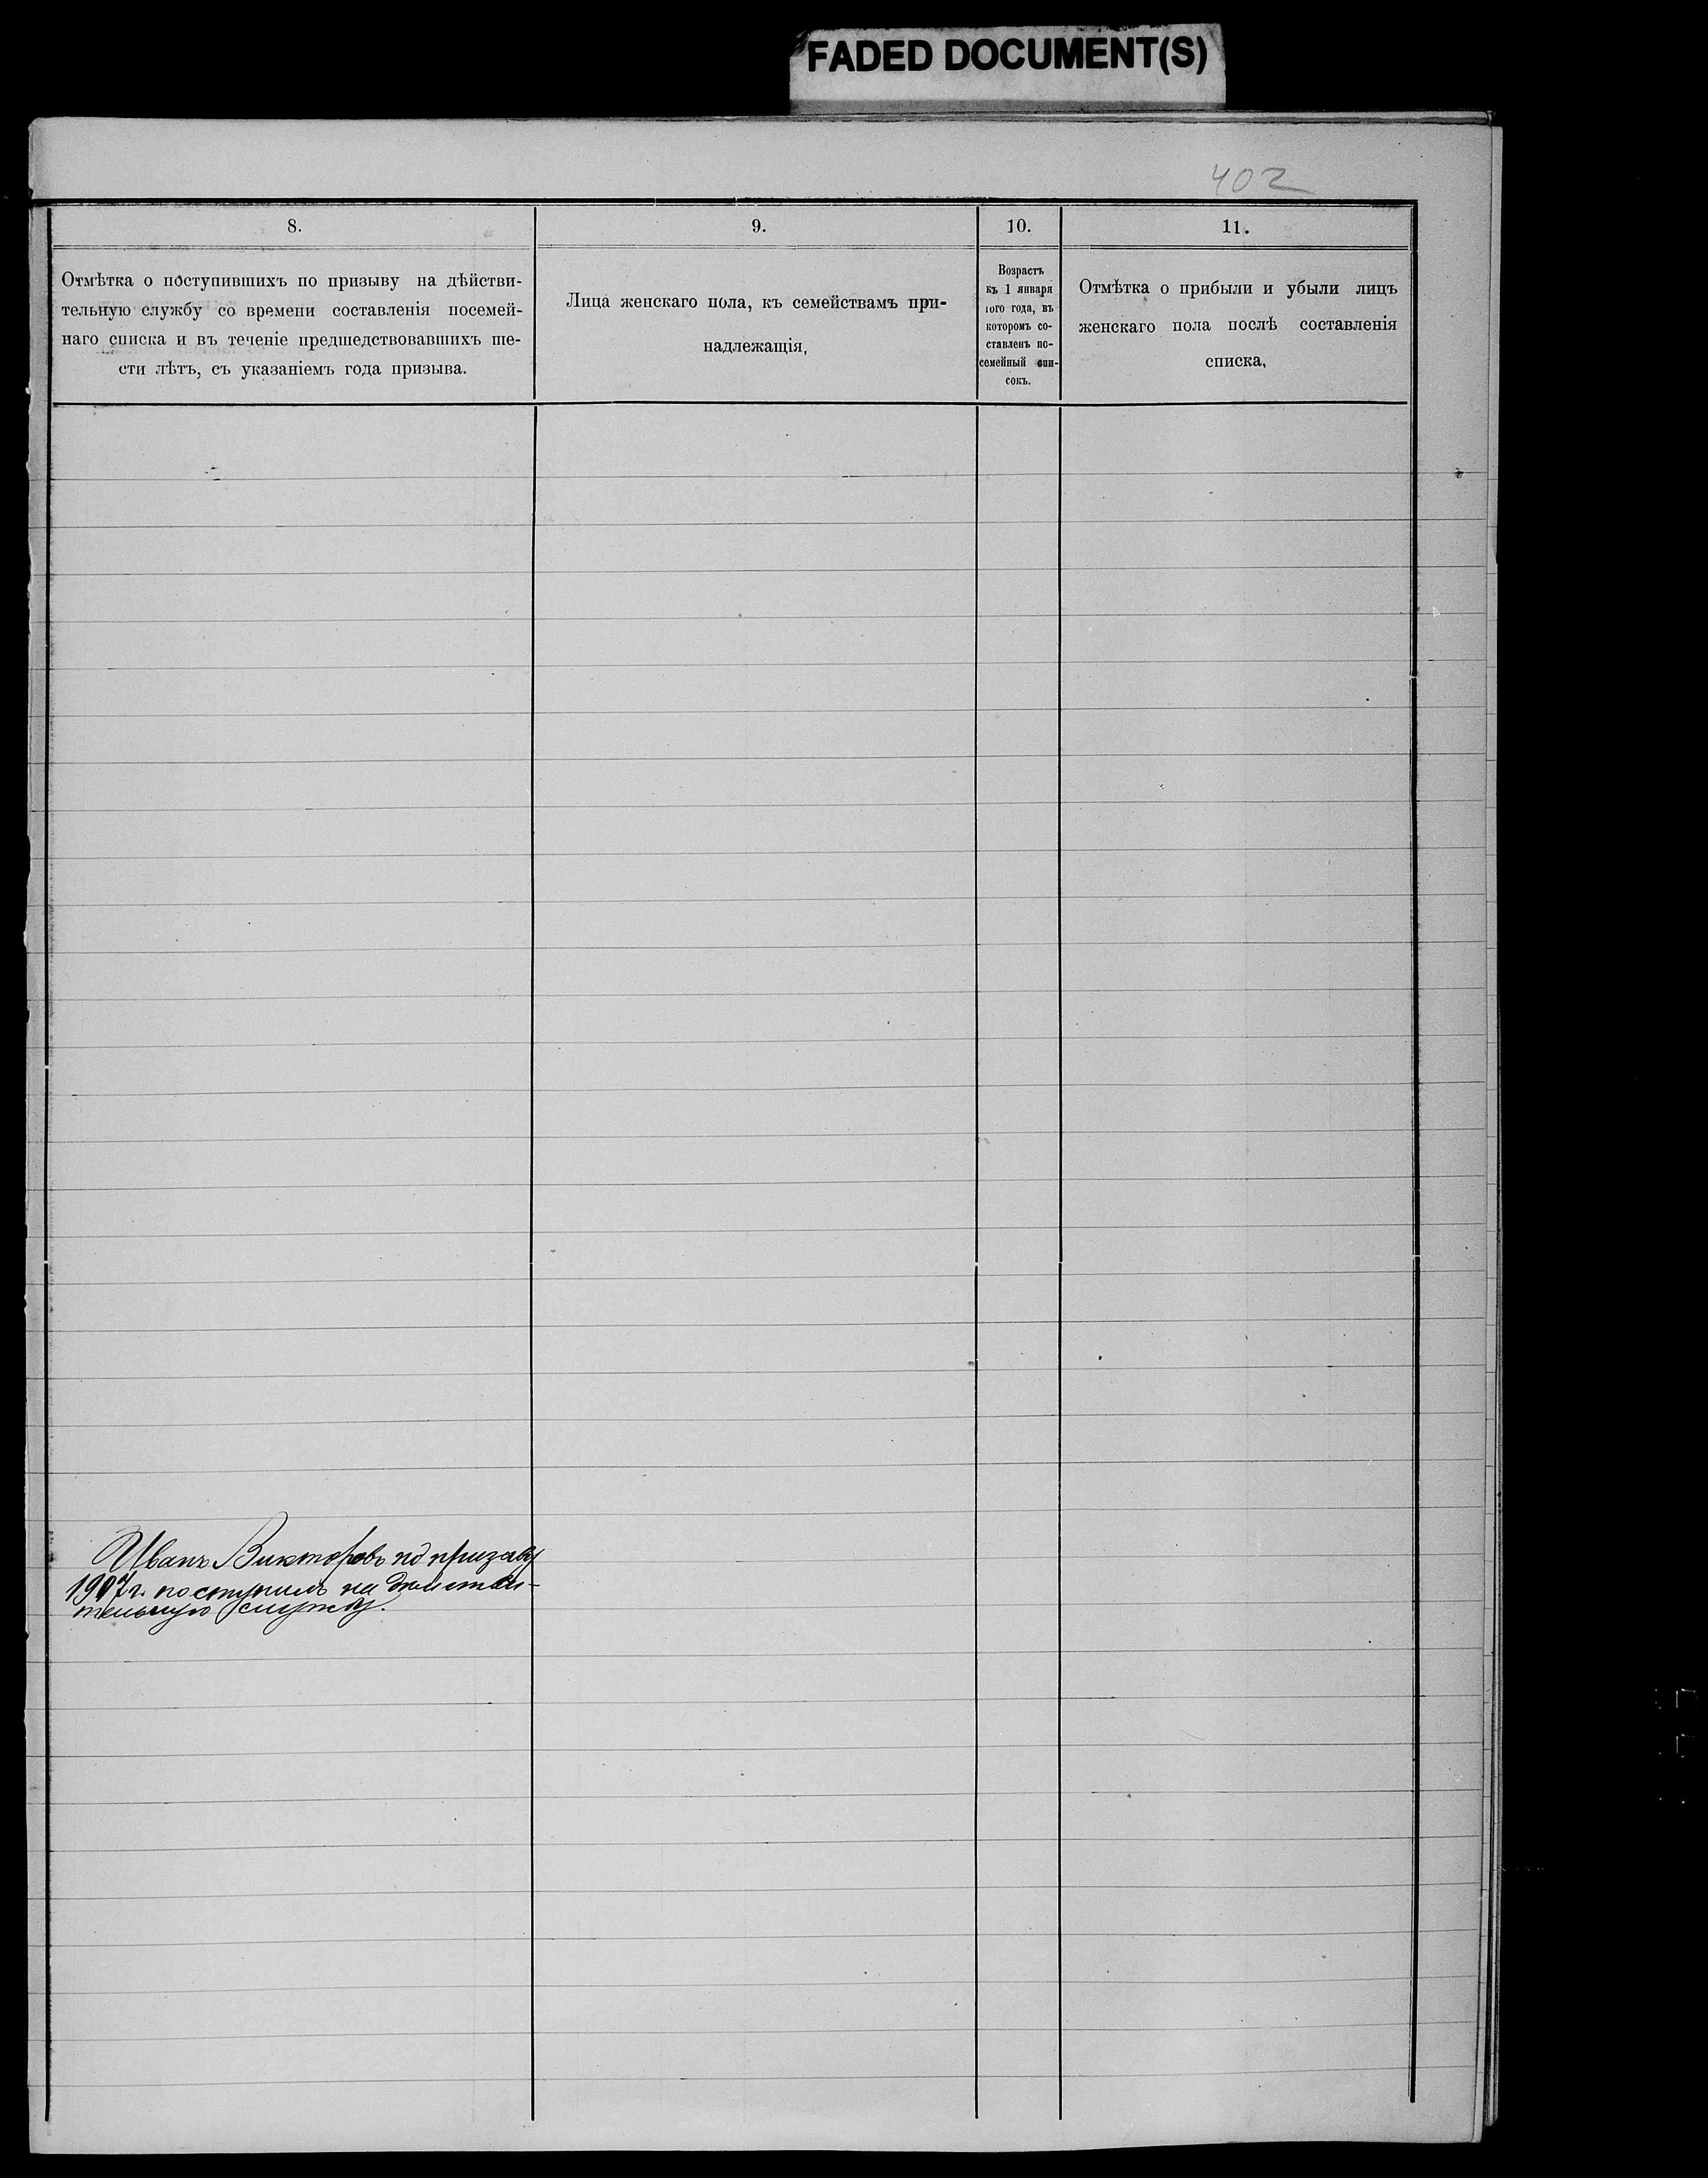 FADED DOCUMENT(S)
402
8.
9.
10.
11.
Отмѣтка о поступившихъ по призыву на дѣйстви-
тельную службу со времени составленія посемей-
наго списка и въ теченіе предшедствовавшихъ ше-
сти лѣтъ, съ указаніемъ года призыва.
Лица женскаго пола, къ семействамъ при-
надлежащія,
Возрастъ
къ 1 января
того года, въ
которомъ со-
ставленъ по-
семейный спи-
сокъ.
Отмѣтка о прибыли и убыли лицъ
женскаго пола послѣ составленія
списка,
Иванъ Викторовъ по призыву
1907 г. поступилъ на действи-
тельную службу.